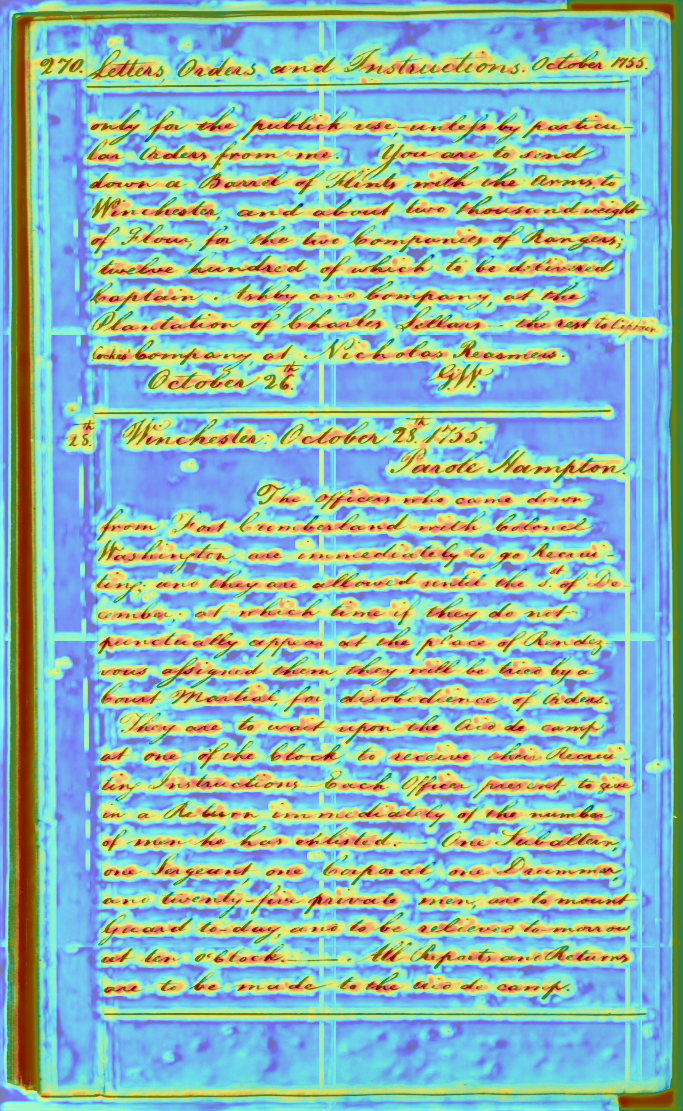 270. Letters, Orders and Instructions. October 1755.
only for the publick use-unless by particu-
lar Orders from me. You are to send
down a Barrel of Flints with the Arms, to
Winchester, and about two thousand weight
of Flour, for the two Companies of Rangers;
twelve hundred of which to be delivered
Captain Ashby and Company, at the
Plantation of Charles Sellars - the rest to Captain
Cockes Company at Nicholas Reasmers.
October 26th. GW.
28th. Winchester: October 28th, 1755.
Parole Hampton.
The Officers who came down
from Fort Cumberland with Colonel
Washington are immediately to go Recrui-
ting; and they are allowed until the 1st. of De-
cember; at which time if they do not
punctually appear at the place of Rendez-
vous assigned them they will be tried by a
Court Martial, for disobedience of Orders.
They are to wait upon the Aid de camp
at one of the Clock to receive their Recrui-
ting Instructions Each Officer present to give
in a Return immediately of the number
of men he has enlisted. - One Subaltern,
one Sergeant, one Corporal one Drummer,
and twenty-five private men, are to mount
Guard to-day, and to be relieved to-morrow
at ten o'Clock. ——. All Reports and Returns
are to be made to the Aid de camp.